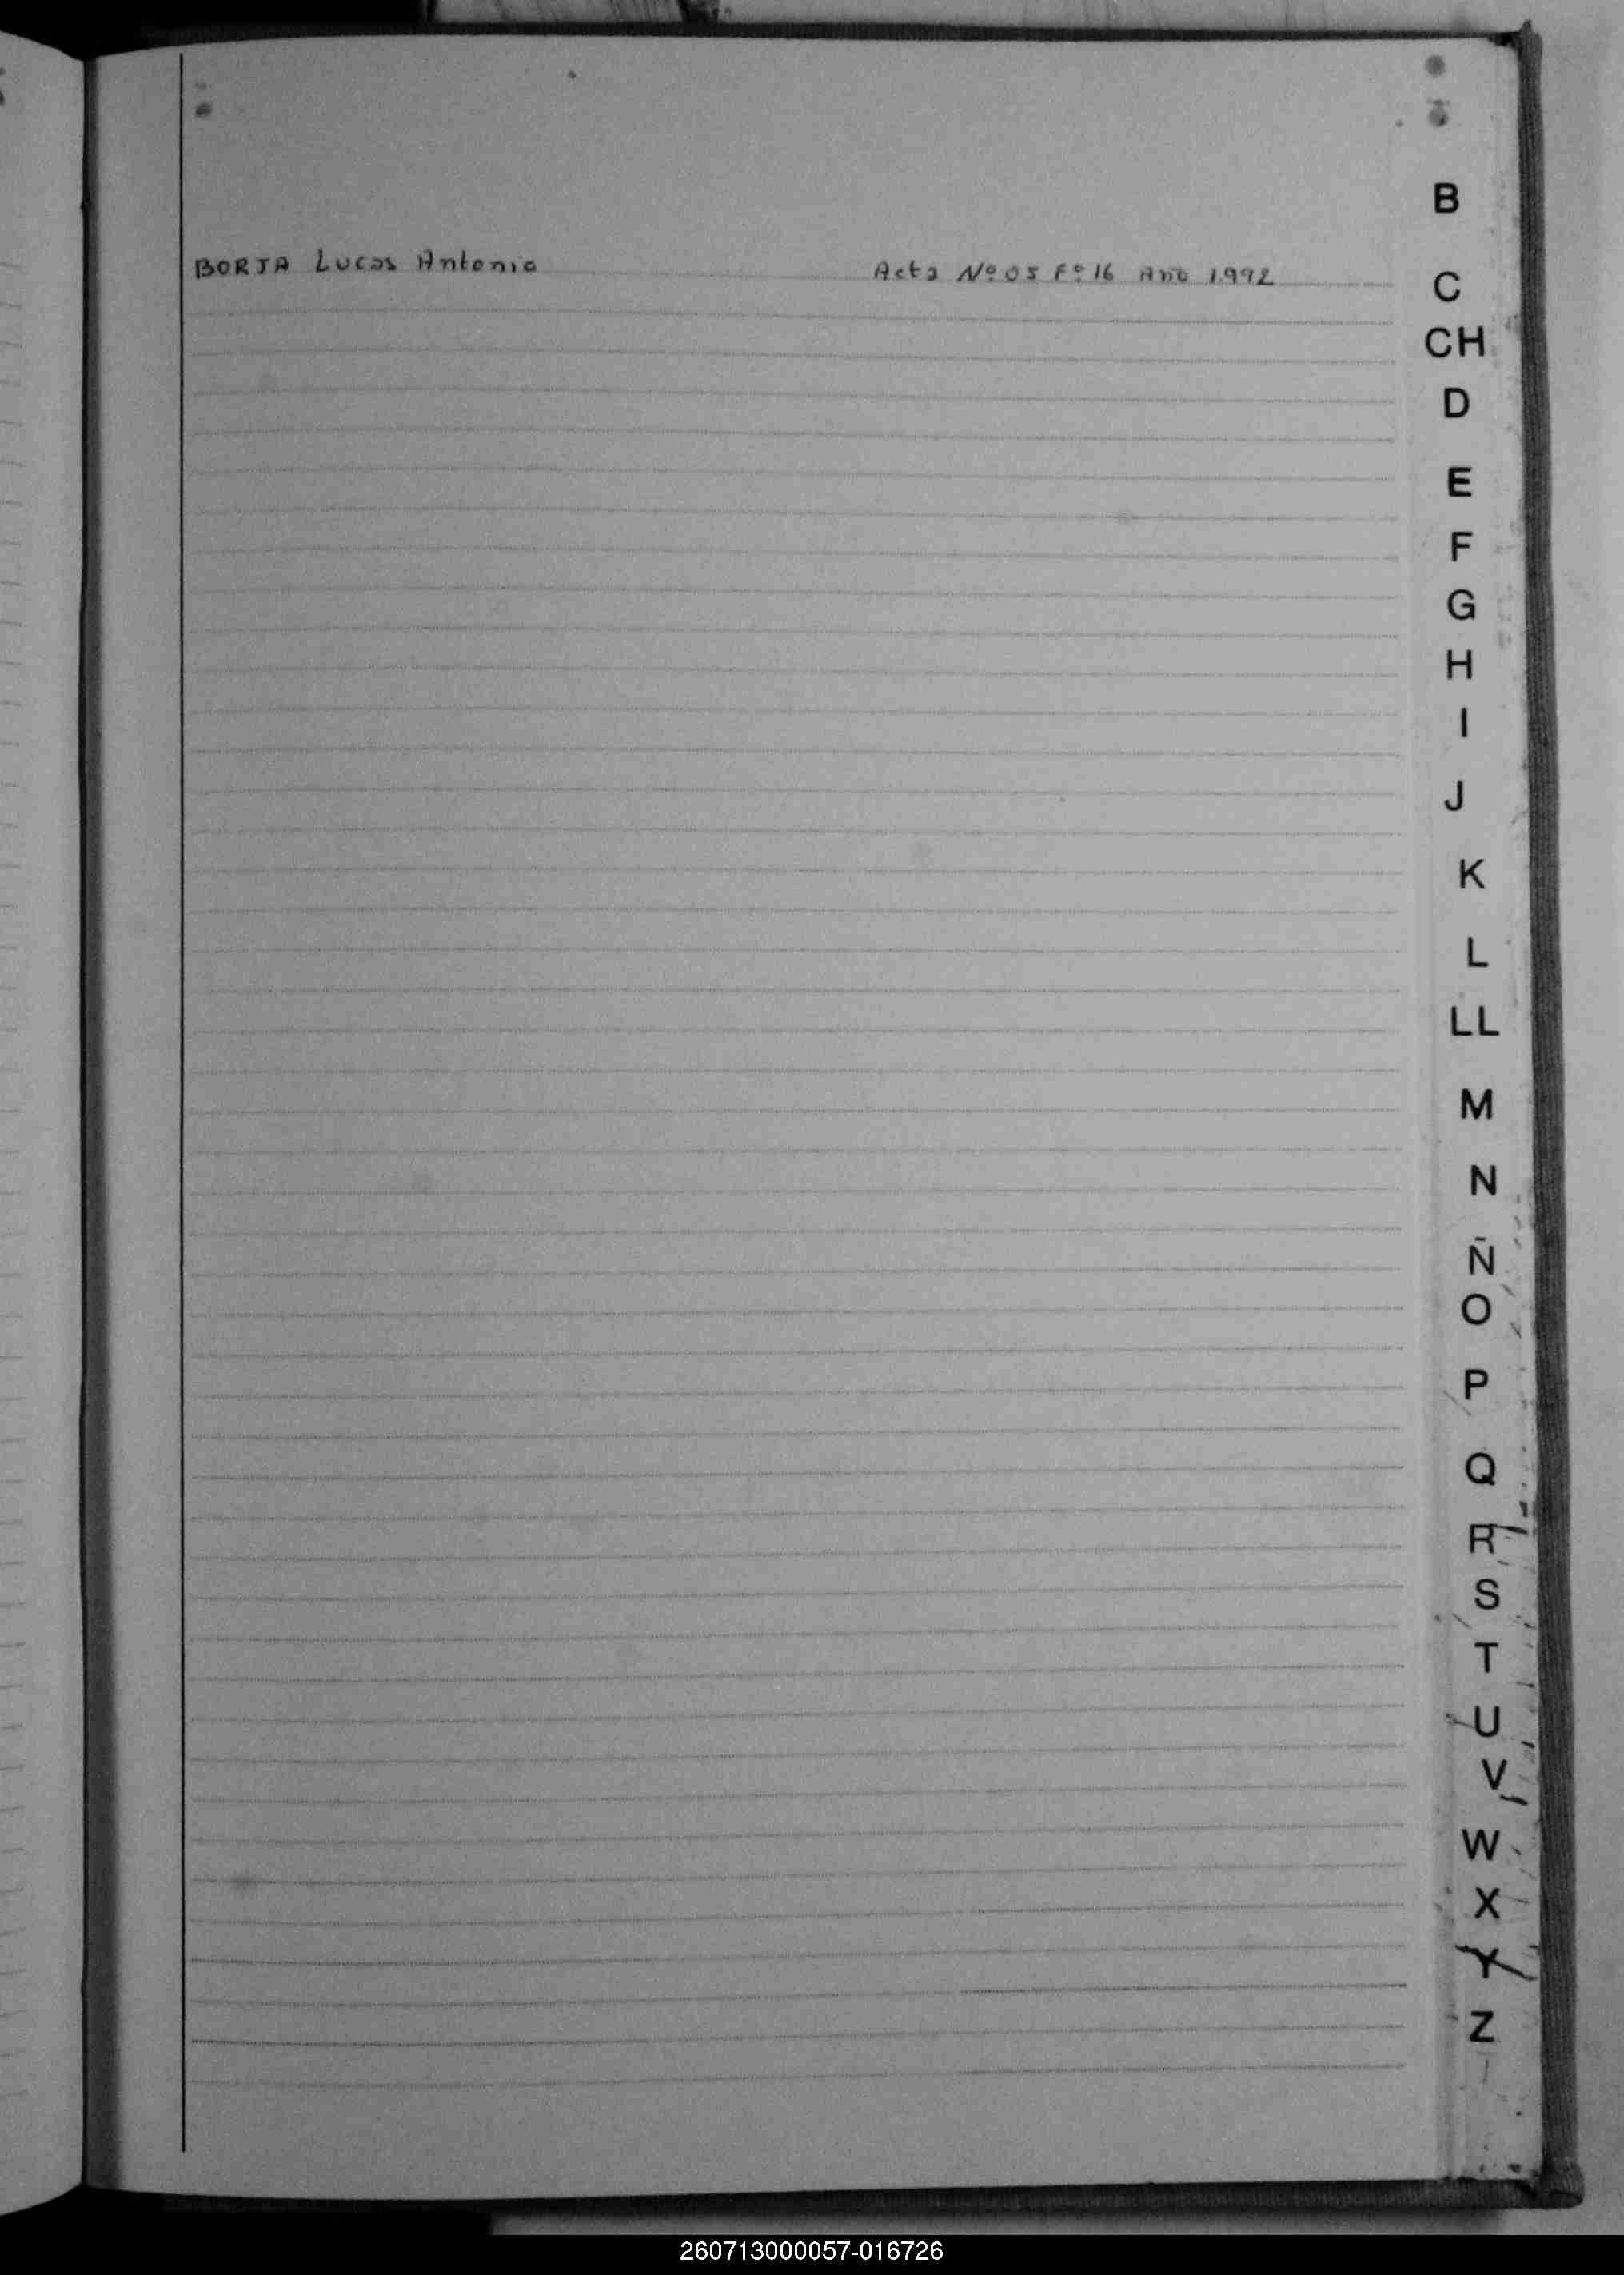 BORJA Lucas Antonio Acta Nº 05 Fº 16 Año 1992
B
C
CH
D
E
F
G
H
I
J
K
L
LL
M
N
Ñ
O
P
Q
R
S
T
U
V
W
X
Y
Z
260713000057-016726